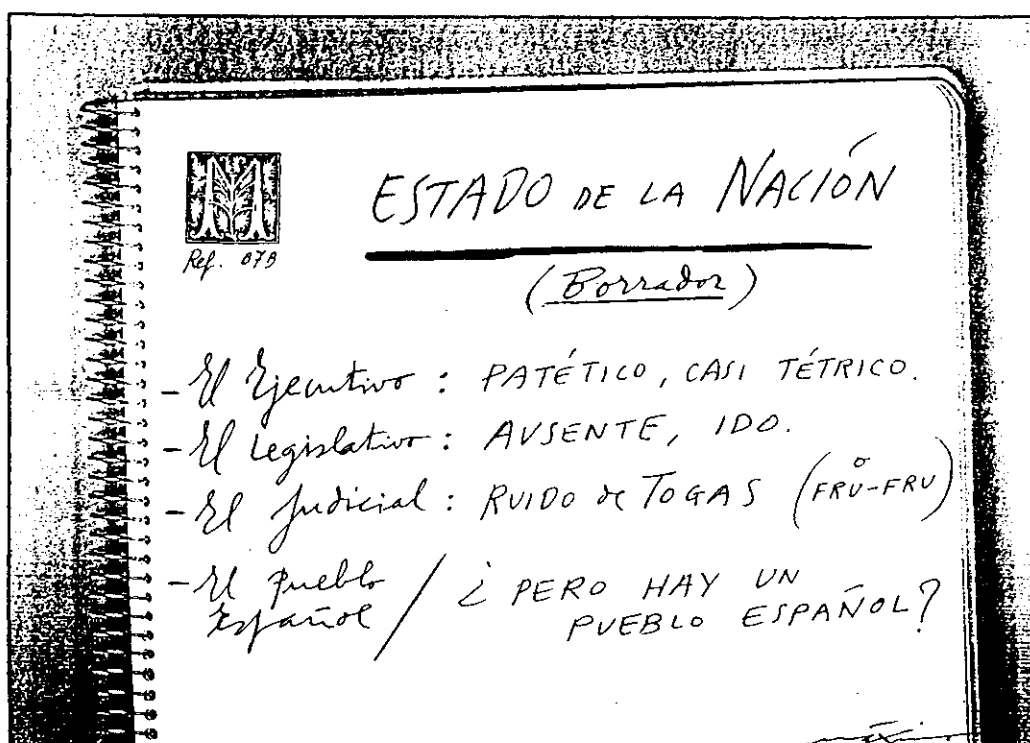 M
Ref. 079
ESTADO DE LA NACIÓN
(Borrador)
- El Ejecutivo: PATÉTICO, CASI TÉTRICO.
- El Legislativo: AUSENTE, IDO.
- El Judicial: RUIDO de TOGAS (FRU-FRU)
- El pueblo Español / ¿PERO HAY UN
PUEBLO ESPAÑOL?
máximo